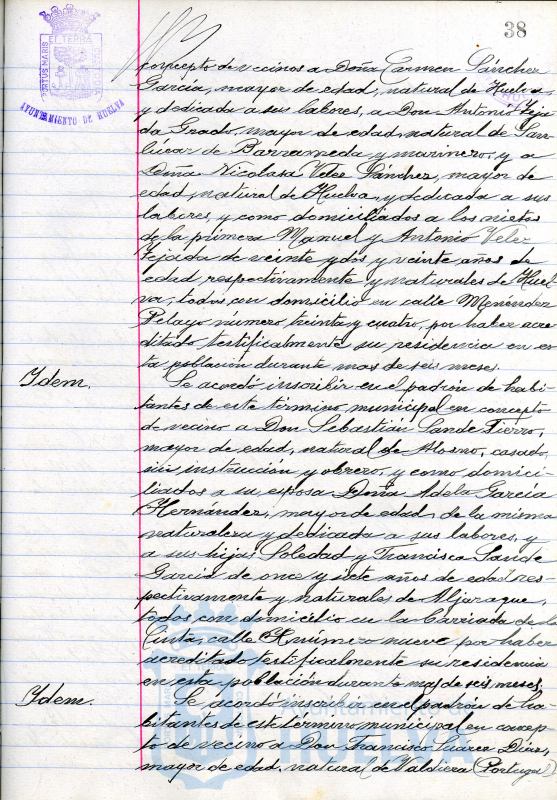 38
PORTUS MARIS
ET TERRÆ
AYUNTAMIENTO DE HUELVA
concepto de vecinos a Doña Carmen Sánchez
García, mayor de edad, natural de Huelva
y dedicada a sus labores, a Don Antonio Teja
da Grado, mayor de edad, natural de San
lúcar de Barrameda y marinero, y a
Doña Nicolasa Velez Sánchez, mayor de
edad, natural de Huelva, y dedicada a sus
labores, y como domiciliados a los nietos
de la primera Manuel y Antonio Velez
Tejada de veinte y dos y veinte años de
edad respectivamente y naturales de Huel
va, todos con domicilio en calle Menéndez
Pelayo número treinta y cuatro, por haber acre
ditado testificalmente su residencia en es
ta población durante mas de seis meses.
Idem. Se acordó inscribir en el padrón de habi
tantes de este término municipal en concepto
de vecino a Don Sebastián Sande Fierro,
mayor de edad, natural de Alosno, casado,
sin instrucción y obrero, y como domici
liados a su esposa Doña Adela García
Hernández, mayor de edad, de la misma
naturaleza y dedicada a sus labores, y
a sus hijas Soledad y Francisca Sande
García de once y siete años de edad res
pectivamente y naturales de Aljaraque,
todos con domicilio en la Barriada de la
Cinta, calle H número nueve por haber
acreditado testificalmente su residencia
en esta población durante mas de seis meses.
Idem. Se acordó inscribir en el padrón de ha
bitantes de este término municipal en concep
to de vecino a Don Francisco Suárez Díaz,
mayor de edad, natural de Valdiera (Portugal)